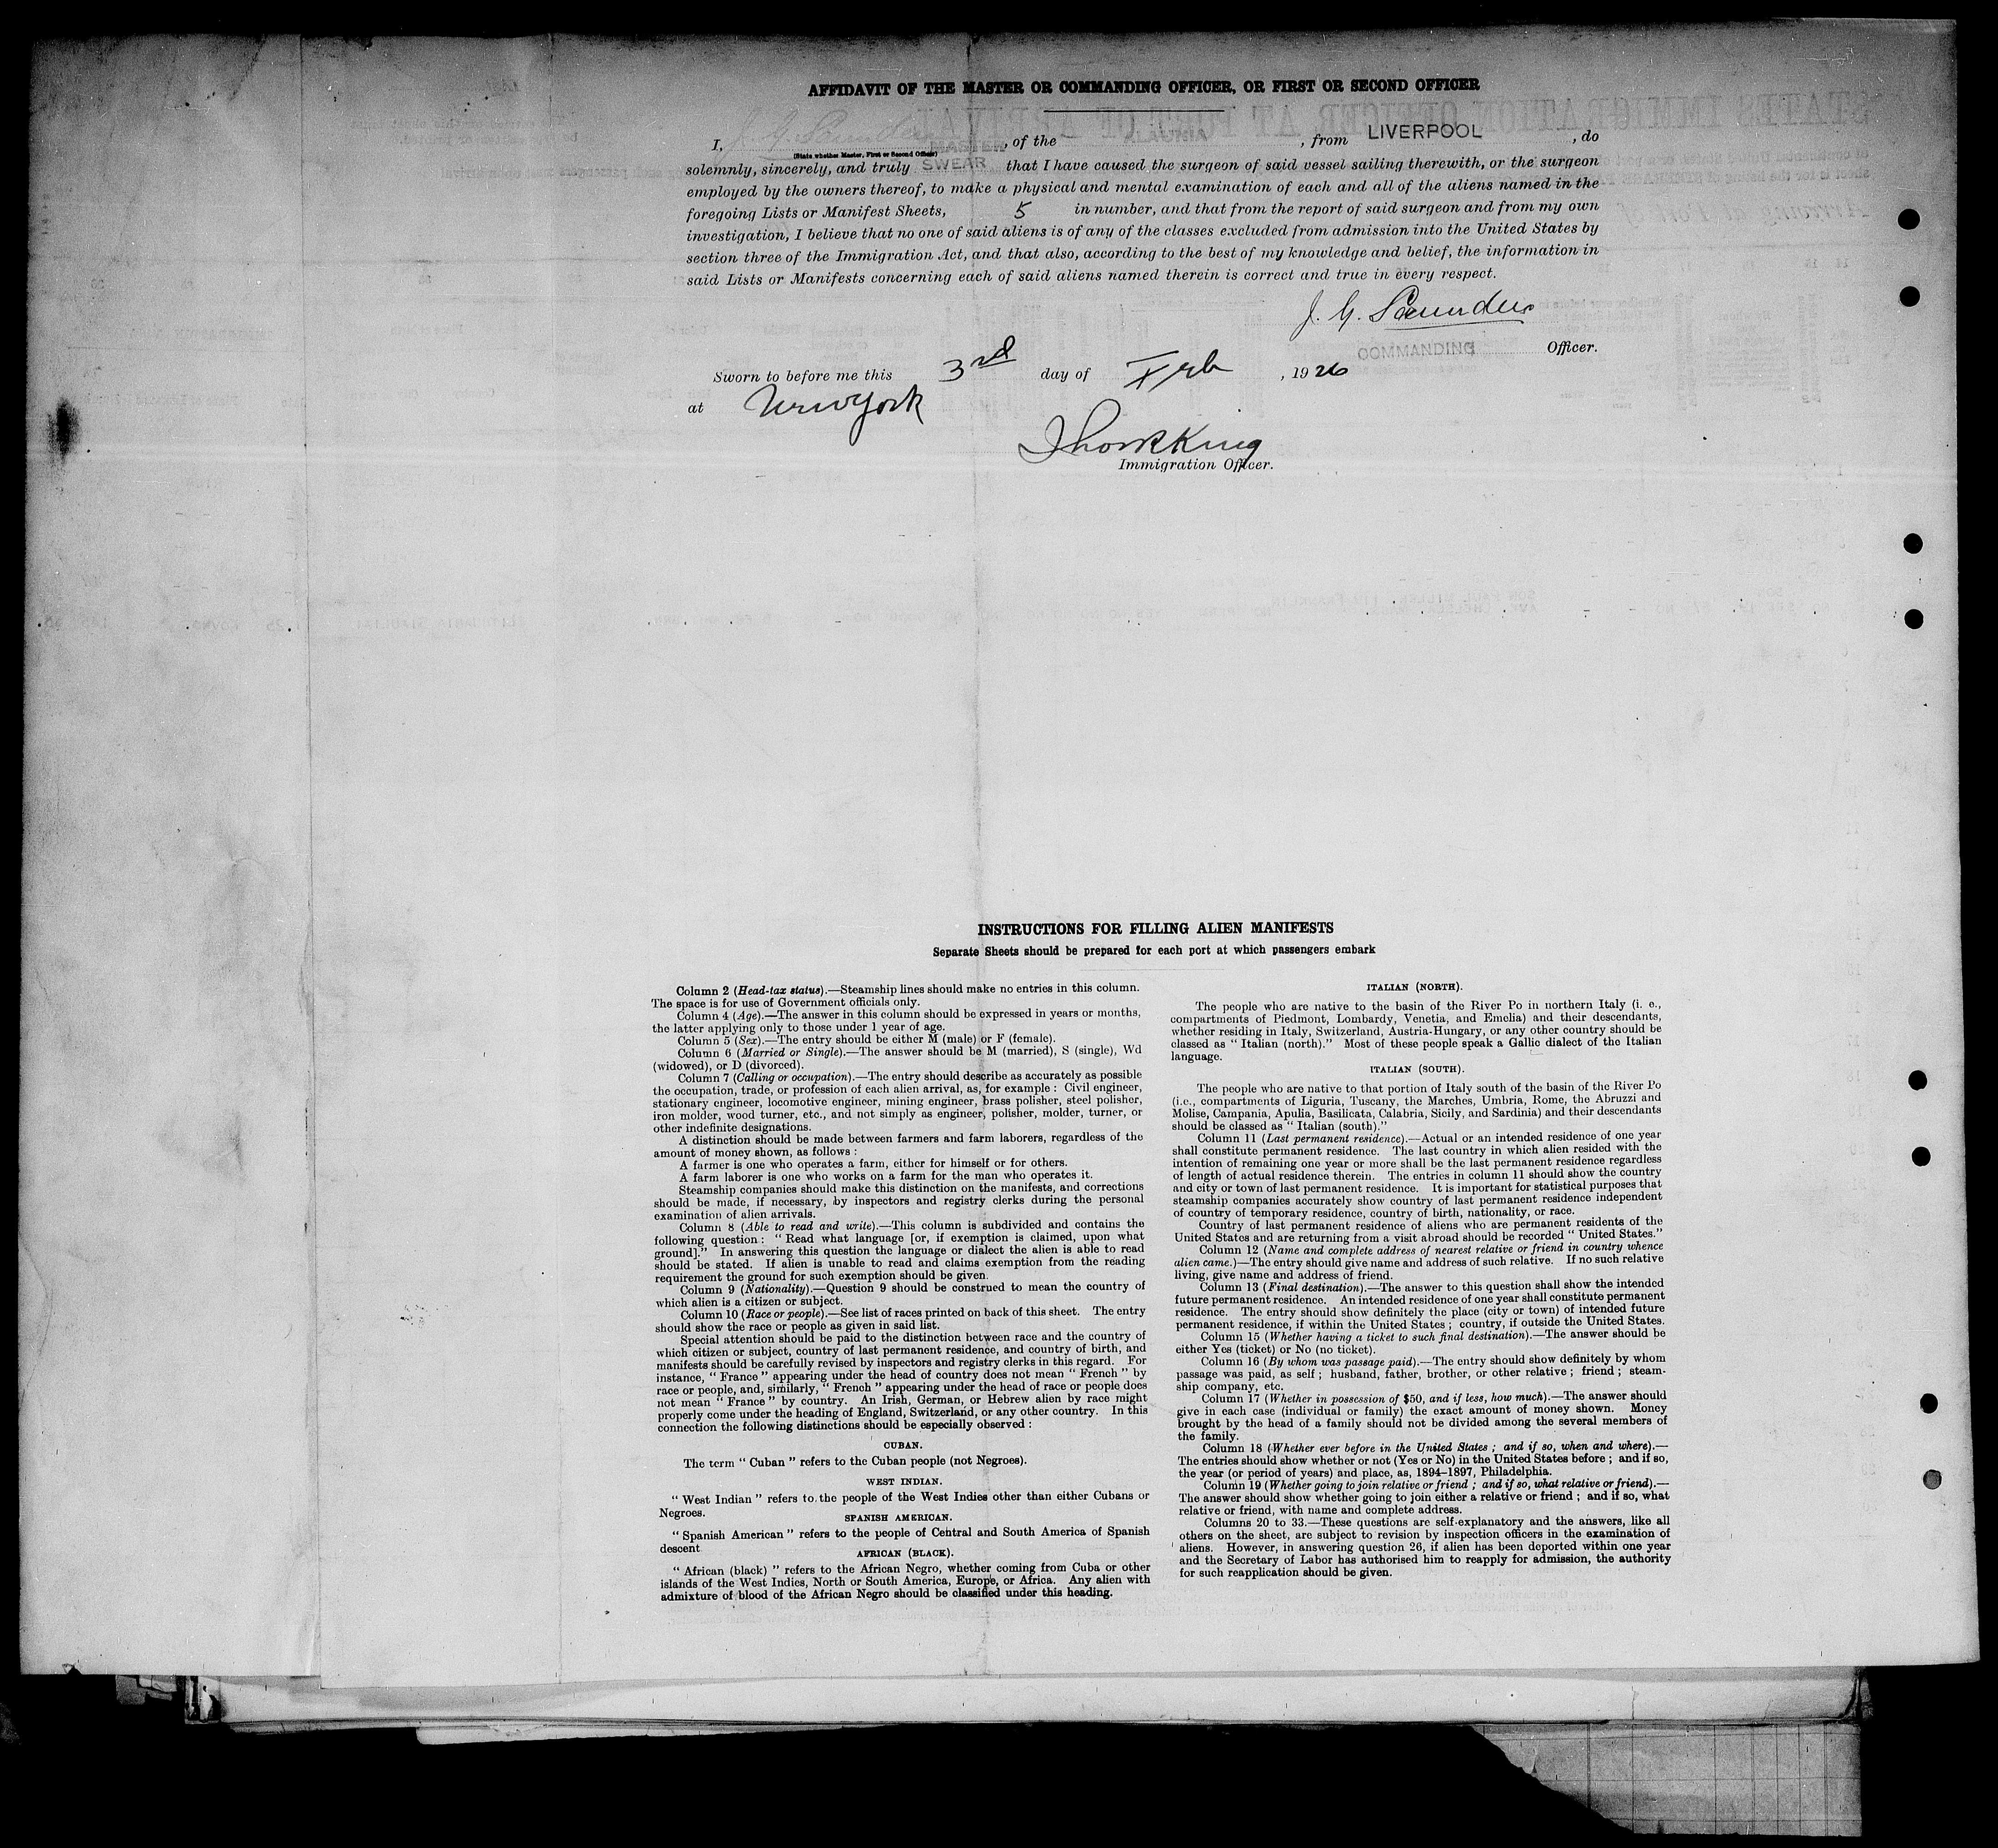 AFFIDAVIT OF THE MASTER OR COMMANDING OFFICER, OR FIRST OR SECOND OFFICER
I, J. G. Saunders MASTER, of the ALAUNIA, from LIVERPOOL, do
(State whether Master, First or Second Officer)
solemnly, sincerely, and truly SWEAR that I have caused the surgeon of said vessel sailing therewith, or the surgeon
employed by the owners thereof, to make a physical and mental examination of each and all of the aliens named in the
foregoing Lists or Manifest Sheets, 5 in number, and that from the report of said surgeon and from my own
investigation, I believe that no one of said aliens is of any of the classes excluded from admission into the United States by
section three of the Immigration Act, and that also, according to the best of my knowledge and belief, the information in
said Lists or Manifests concerning each of said aliens named therein is correct and true in every respect.
J. G. Saunders
COMMANDING Officer.
Sworn to before me this 3rd day of Feb, 1926
at New York
King
Immigration Officer.
INSTRUCTIONS FOR FILLING ALIEN MANIFESTS
Separate Sheets should be prepared for each port at which passengers embark
Column 2 (Head-tax status).—Steamship lines should make no entries in this column.
The space is for use of Government officials only.
Column 4 (Age).—The answer in this column should be expressed in years or months,
the latter applying only to those under 1 year of age.
Column 5 (Sex).—The entry should be either M (male) or F (female).
Column 6 (Married or Single).—The answer should be M (married), S (single), Wd
(widowed), or D (divorced).
Column 7 (Calling or occupation).—The entry should describe as accurately as possible
the occupation, trade, or profession of each alien arrival, as, for example : Civil engineer,
stationary engineer, locomotive engineer, mining engineer, brass polisher, steel polisher,
iron molder, wood turner, etc., and not simply as engineer, polisher, molder, turner, or
other indefinite designations.
A distinction should be made between farmers and farm laborers, regardless of the
amount of money shown, as follows :
A farmer is one who operates a farm, either for himself or for others.
A farm laborer is one who works on a farm for the man who operates it.
Steamship companies should make this distinction on the manifests, and corrections
should be made, if necessary, by inspectors and registry clerks during the personal
examination of alien arrivals.
Column 8 (Able to read and write).—This column is subdivided and contains the
following question : “ Read what language [or, if exemption is claimed, upon what
ground].” In answering this question the language or dialect the alien is able to read
should be stated. If alien is unable to read and claims exemption from the reading
requirement the ground for such exemption should be given.
Column 9 (Nationality).—Question 9 should be construed to mean the country of
which alien is a citizen or subject.
Column 10 (Race or people).—See list of races printed on back of this sheet. The entry
should show the race or people as given in said list.
Special attention should be paid to the distinction between race and the country of
which citizen or subject, country of last permanent residence, and country of birth, and
manifests should be carefully revised by inspectors and registry clerks in this regard. For
instance, “ France ” appearing under the head of country does not mean “ French ” by
race or people, and, similarly, “ French ” appearing under the head of race or people does
not mean “ France ” by country. An Irish, German, or Hebrew alien by race might
properly come under the heading of England, Switzerland, or any other country. In this
connection the following distinctions should be especially observed :
CUBAN.
The term “ Cuban ” refers to the Cuban people (not Negroes).
WEST INDIAN.
“ West Indian ” refers to the people of the West Indies other than either Cubans or
Negroes.
SPANISH AMERICAN.
“ Spanish American ” refers to the people of Central and South America of Spanish
descent
AFRICAN (BLACK).
“ African (black) ” refers to the African Negro, whether coming from Cuba or other
islands of the West Indies, North or South America, Europe, or Africa. Any alien with
admixture of blood of the African Negro should be classified under this heading.
ITALIAN (NORTH).
The people who are native to the basin of the River Po in northern Italy (i. e.,
compartments of Piedmont, Lombardy, Venetia, and Emelia) and their descendants,
whether residing in Italy, Switzerland, Austria-Hungary, or any other country should be
classed as “ Italian (north).” Most of these people speak a Gallic dialect of the Italian
language.
ITALIAN (SOUTH).
The people who are native to that portion of Italy south of the basin of the River Po
(i.e., compartments of Liguria, Tuscany, the Marches, Umbria, Rome, the Abruzzi and
Molise, Campania, Apulia, Basilicata, Calabria, Sicily, and Sardinia) and their descendants
should be classed as “ Italian (south).”
Column 11 (Last permanent residence).—Actual or an intended residence of one year
shall constitute permanent residence. The last country in which alien resided with the
intention of remaining one year or more shall be the last permanent residence regardless
of length of actual residence therein. The entries in column 11 should show the country
and city or town of last permanent residence. It is important for statistical purposes that
steamship companies accurately show country of last permanent residence independent
of country of temporary residence, country of birth, nationality, or race.
Country of last permanent residence of aliens who are permanent residents of the
United States and are returning from a visit abroad should be recorded “ United States.”
Column 12 (Name and complete address of nearest relative or friend in country whence
alien came.)—The entry should give name and address of such relative. If no such relative
living, give name and address of friend.
Column 13 (Final destination).—The answer to this question shall show the intended
future permanent residence. An intended residence of one year shall constitute permanent
residence. The entry should show definitely the place (city or town) of intended future
permanent residence, if within the United States ; country, if outside the United States.
Column 15 (Whether having a ticket to such final destination).—The answer should be
either Yes (ticket) or No (no ticket).
Column 16 (By whom was passage paid).—The entry should show definitely by whom
passage was paid, as self ; husband, father, brother, or other relative ; friend ; steam-
ship company, etc.
Column 17 (Whether in possession of $50, and if less, how much).—The answer should
give in each case (individual or family) the exact amount of money shown. Money
brought by the head of a family should not be divided among the several members of
the family.
Column 18 (Whether ever before in the United States ; and if so, when and where).—
The entries should show whether or not (Yes or No) in the United States before ; and if so,
the year (or period of years) and place, as, 1894–1897, Philadelphia.
Column 19 (Whether going to join relative or friend ; and if so, what relative or friend).—
The answer should show whether going to join either a relative or friend ; and if so, what
relative or friend, with name and complete address.
Columns 20 to 33.—These questions are self-explanatory and the answers, like all
others on the sheet, are subject to revision by inspection officers in the examination of
aliens. However, in answering question 26, if alien has been deported within one year
and the Secretary of Labor has authorised him to reapply for admission, the authority
for such reapplication should be given.